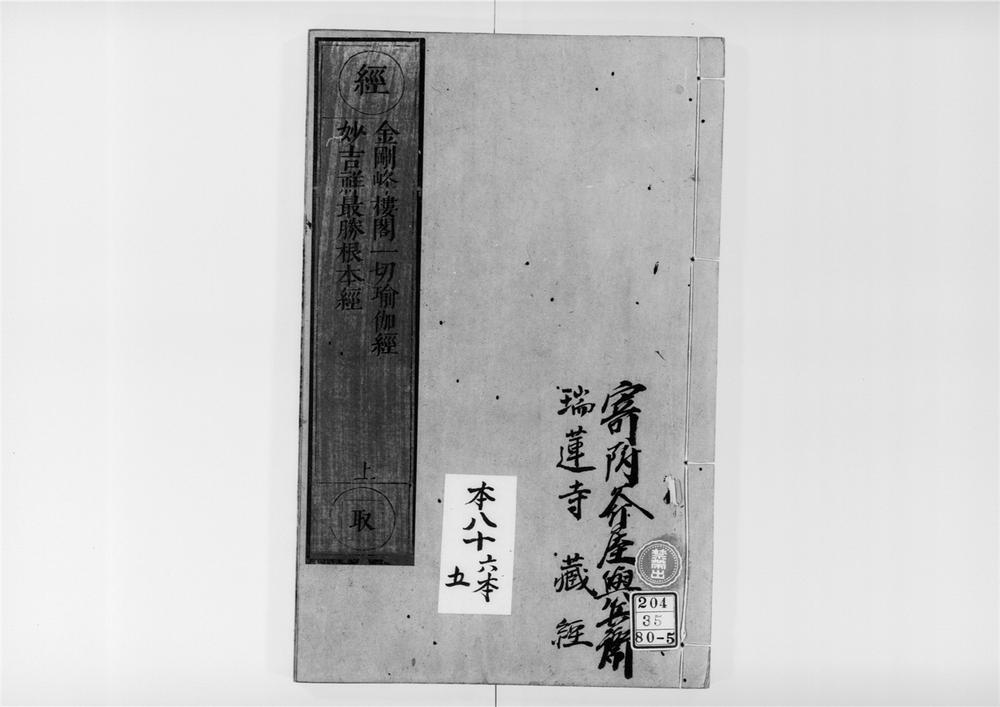 寄附
瑞蓮寺 藏經
禁帶出
204
35
80-5
本八十六本
五
經
金剛峰樓閣一切瑜伽經
妙吉祥最勝根本經
上
取